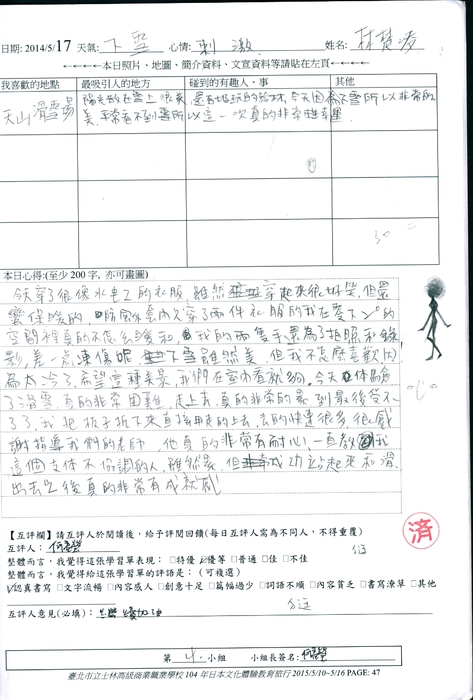 日期: 2014/5/17 天氣: 下雪 心情: 刺激 姓名:
←←←←本日照片、地圖、簡介資料、文宣資料等請貼在左頁←←←←
我喜歡的地點 最吸引人的地方 碰到的有趣人、事 其他
天山滑雪場
本日心得:(至少 200 字, 亦可畫圖)
今天穿了很像水電工的衣服,雖然穿起來很好笑,但還
蠻保暖的,
空間裡真的不怎麼暖和,我的兩隻手還為了拍照和錄
影,差一點凍傷呢 下雪雖然美,但我不怎麼喜歡因
為太冷了,希望這種美景,我們在室內看就夠,今天體驗
了滑雪,真的非常困難,走上去真的非常的累,到最後受不
了了,我把板子拆下來直接用走的上去,走的快速很多,很感
謝指導我們的老師,他真的非常有耐心一直教我
這個肢體不協調的人,雖然累,但成功站起來和滑
出去之後真的非常有成就感
【互評欄】請互評人於閱讀後,給予評閱回饋(每日互評人需為不同人,不得重覆)
互評人:
整體而言,我覺得這張學習單表現: □特優 □優等 □普通 □佳 □不佳
整體而言,我覺得給這張學習單的評語是: (可複選)
□認真書寫 □文字流暢 □內容感人 □創意十足 □篇幅過少 □詞語不順 □內容貧乏 □書寫潦草 □其他
互評人意見(必填):
済
第 4 小組 小組長簽名:
臺北市立士林高級商業職業學校 104 年日本文化體驗教育旅行 2015/5/10~5/16 PAGE: 47